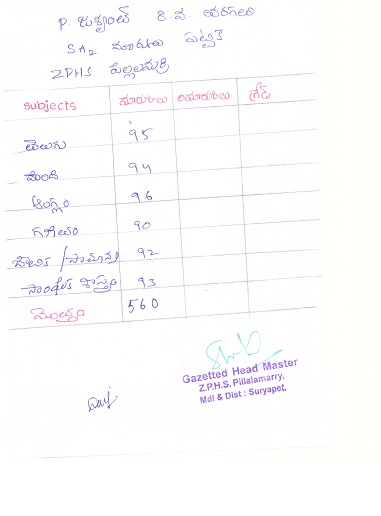 8.వ తరగతి
SA2 మార్కులు పట్టిక
ZPHS పిల్లలమర్రి
subjects మార్కులు గ్రేడ్
తెలుగు 95
హిందీ 94
ఆంగ్లం 96
గణితం 90
92
సాంఘీక శాస్త్రం 93
మొత్తం 560
Gazetted Head Master
Z.P.H.S. Pillalamarry,
Mdl & Dist : Suryapet.